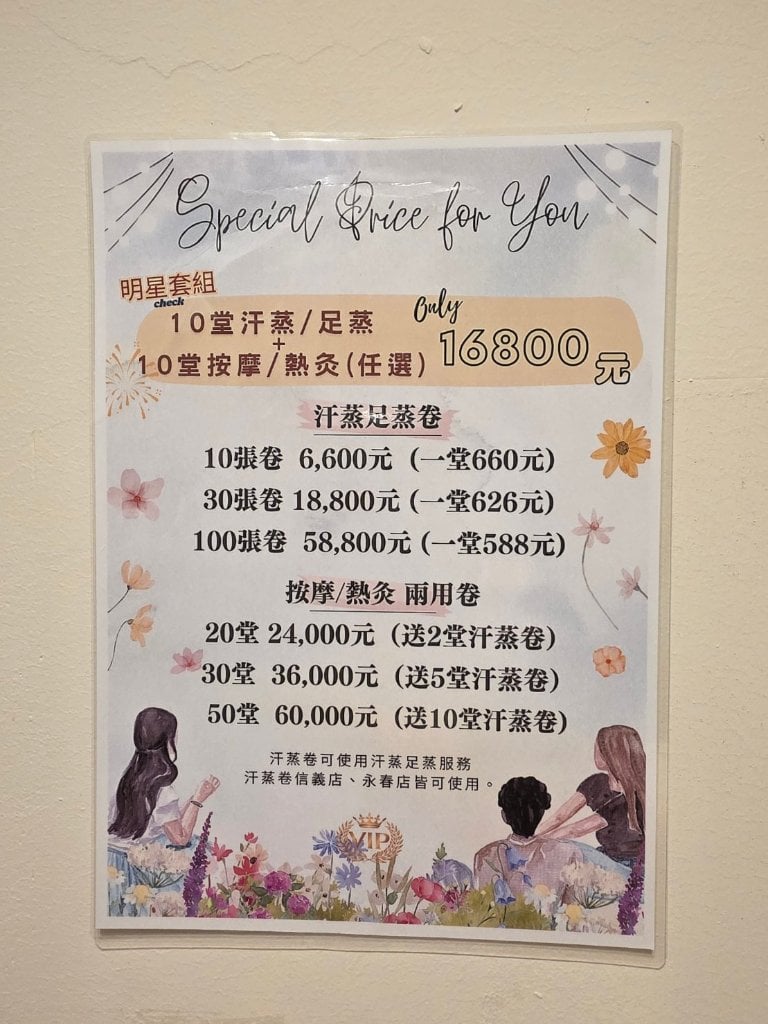 Special Price for You
明星套組
check
10堂汗蒸/足蒸
+
10堂按摩/熱灸(任選)
Only
16800元
汗蒸足蒸卷
10張卷 6,600元 (一堂660元)
30張卷 18,800元 (一堂626元)
100張卷 58,800元 (一堂588元)
按摩/熱灸 兩用卷
20堂 24,000元 (送2堂汗蒸卷)
30堂 36,000元 (送5堂汗蒸卷)
50堂 60,000元 (送10堂汗蒸卷)
汗蒸卷可使用汗蒸足蒸服務
汗蒸卷信義店、永春店皆可使用。
VIP